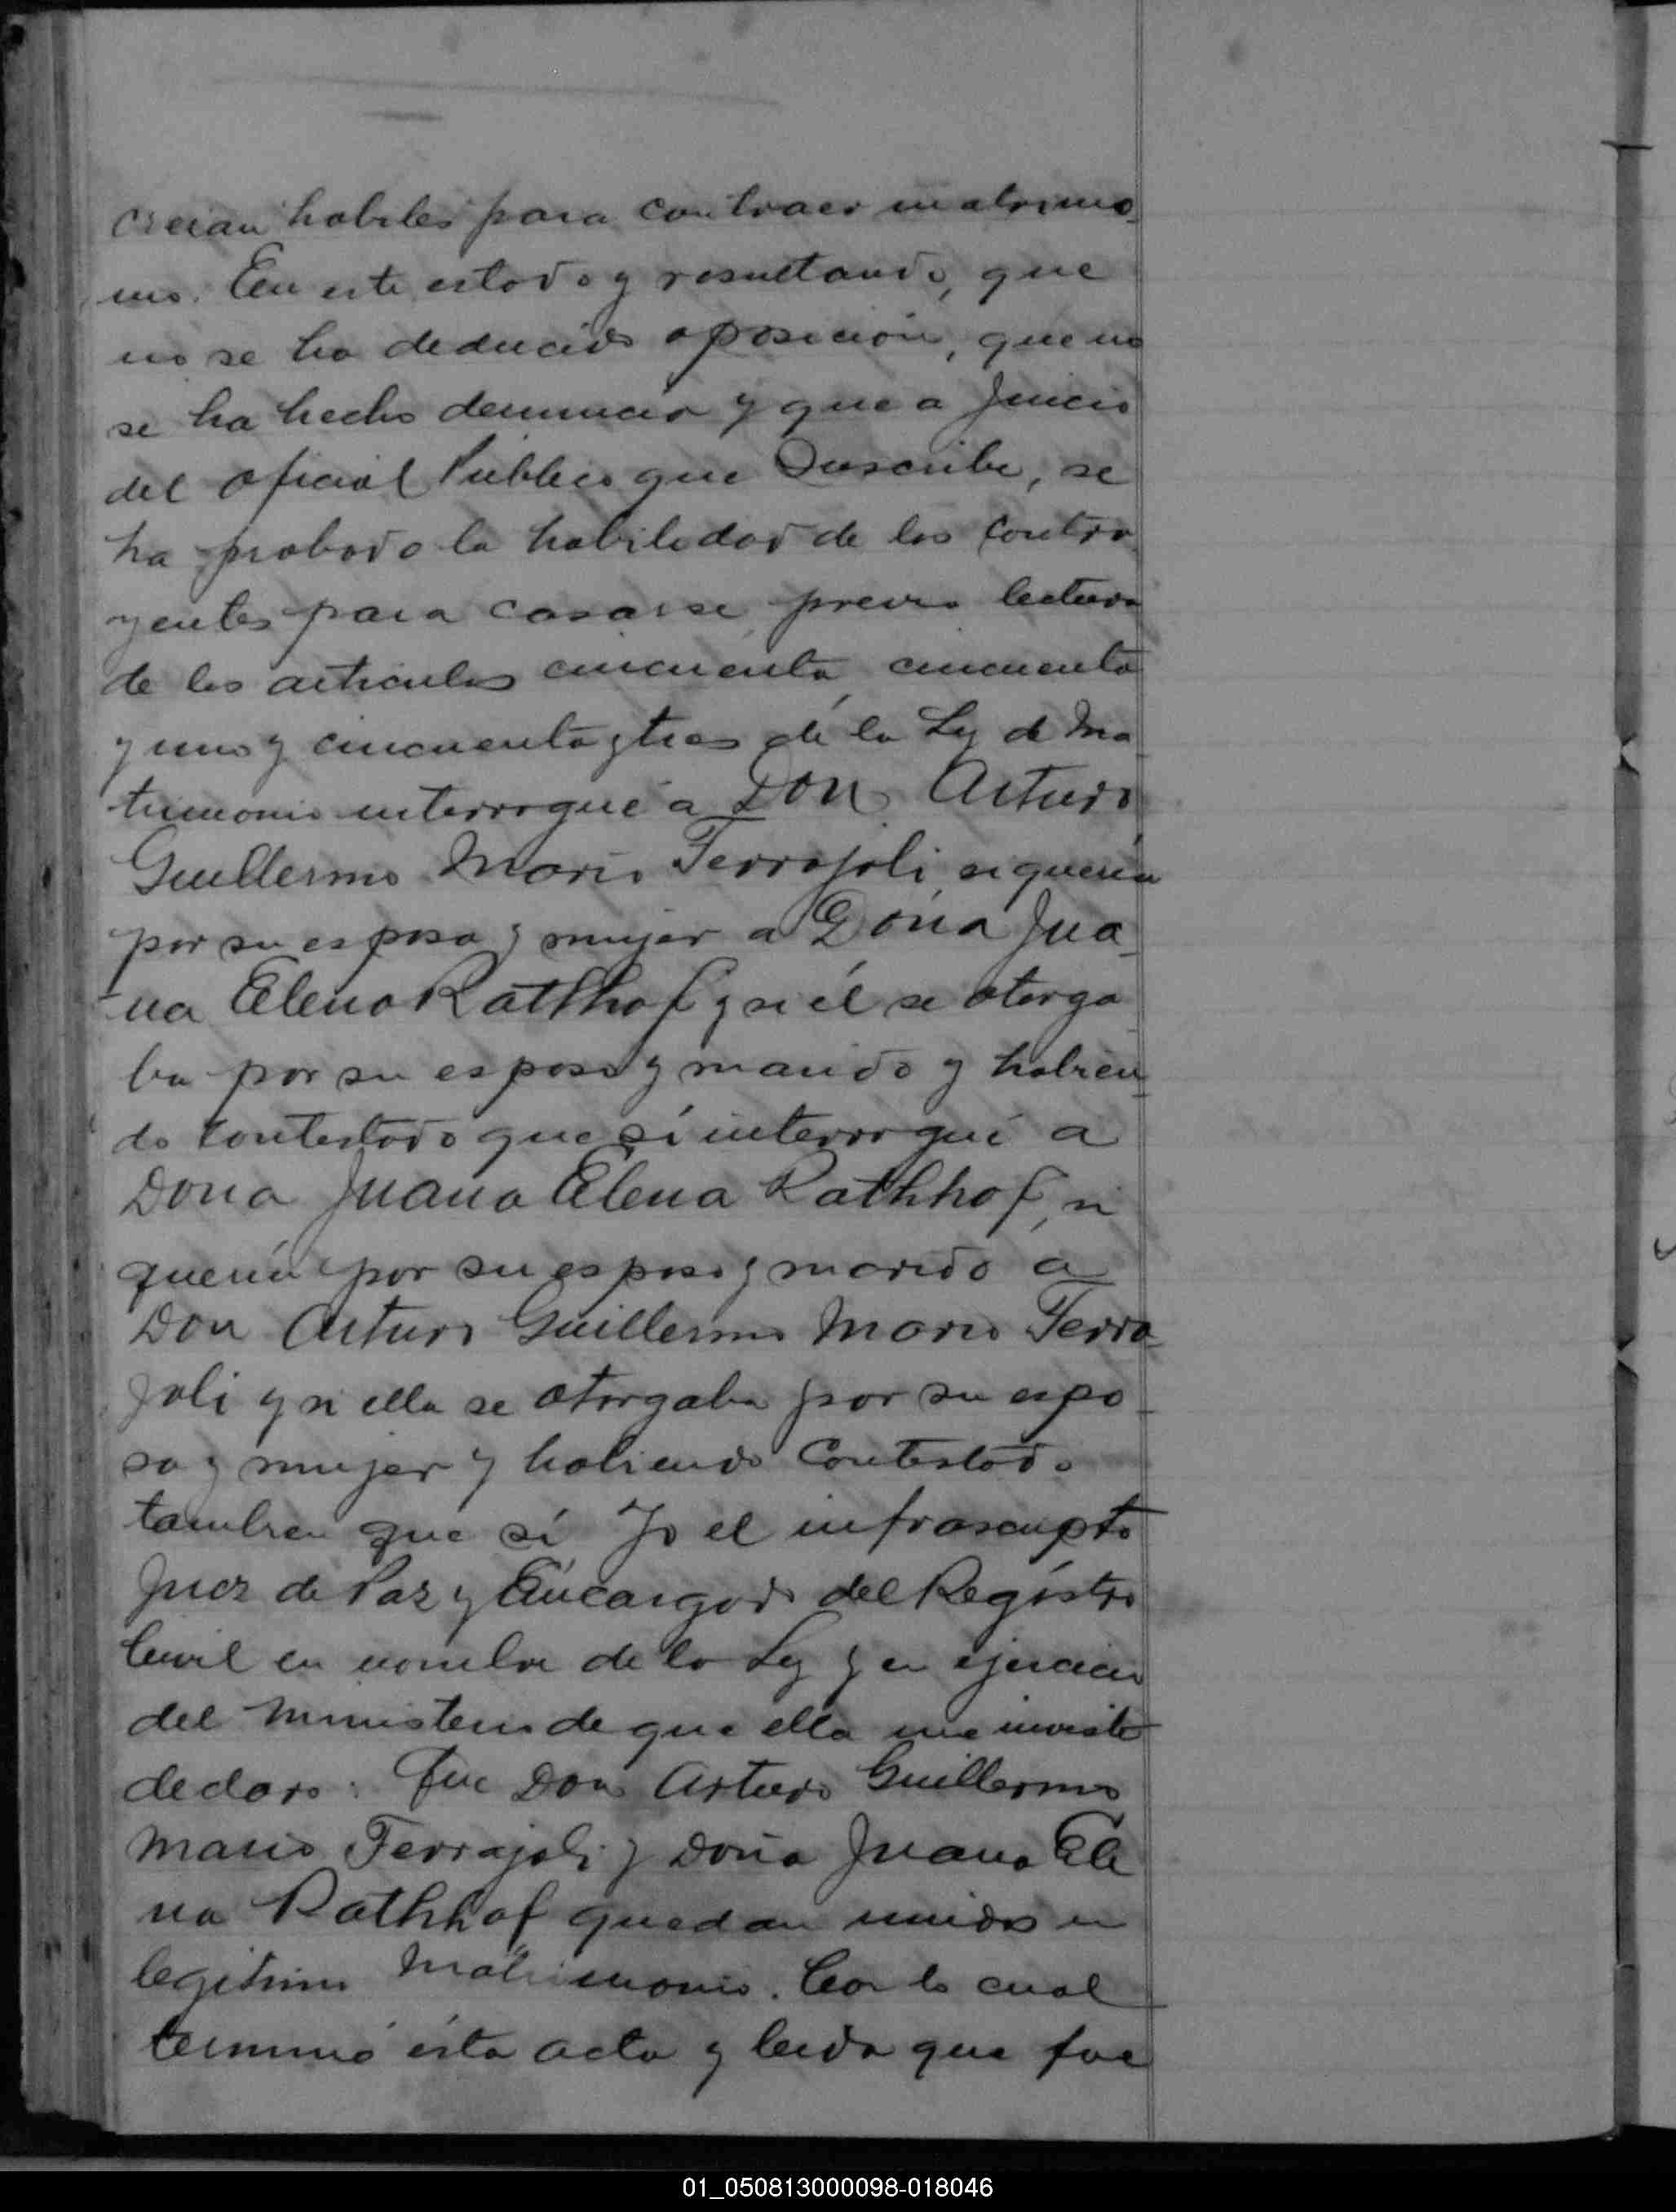 creian habiles para contraer matrimo_
nio. En este estado y resultando, que
no se ha deducido oposición, que no
se ha hecho denuncia y que a Juicio
del oficial Publico que Suscribe, se
ha probado la habilidad de los contra
yentes para casarse, previa lectura
de los articulos cincuenta, cincuenta
y uno y cincuenta y tres de la Ley de Ma
trimonio interrogué a Don Arturo
Guillermo Mario Ferrajoli, si queria
por su esposa y mujer a Doña Jua_
na Elena Rathhof y si él se otorga
ba por su esposo y marido y habien_
do contestado que si interrogué a
Doña Juana Elena Rathhof, si
queria por su esposo y marido a
Don Arturo Guillermo Mario Ferra_
joli y si ella se otorgaba por su espo_
sa y mujer y habiendo contestado
tambien que sí Yo el infrascripto
Juez de Paz y Encargado del Registro
Civil en nombre de la Ley y en ejercicio
del Ministerio de que ella me inviste
declaro: Que Don Arturo Guillermo
Mario Ferrajoli y Doña Juana Ele
na Rathhof quedan unidos en
legitimo Matrimonio. Con lo cual
terminó ésta acta y leida que fue
01_050813000098-018046